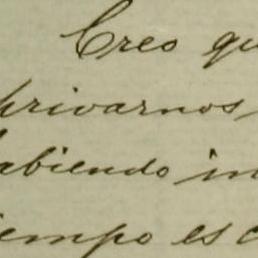 Creo qu
privarnos
abiendo in
iempo es c